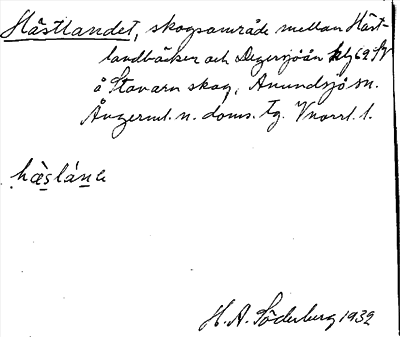 Hästlandet, skogsområde mellan Häst-
landbäcken och Degersjöån blg 62 SV
å Stavarn skog, Anundsjö sn.
Ångerml. n. doms. tg. Vnorrl. l.
hæ̀slána
H. A. Söderberg 1932